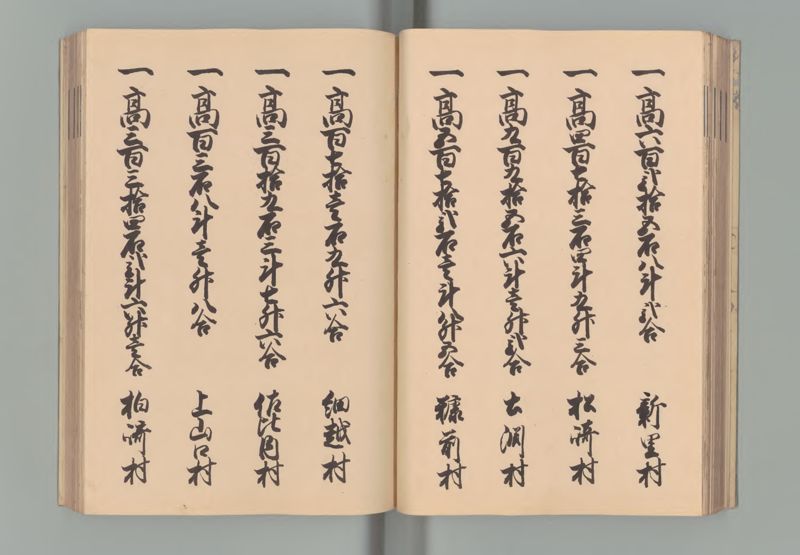 一高六百弐拾五石八斗弐合 新里村
一高四百七拾三石四斗九升三合 松崎村
一高九百九拾五石六斗壱升弐合 土渕村
一高五百七拾弐石壱斗八升五合 糠前村
一高百七拾壱石九升六合 細越村
一高三百拾九石三斗七升六合 佐比内村
一高百三石八斗壱升八合 上山口村
一高三百三拾四石弐斗六升壱合 柏崎村